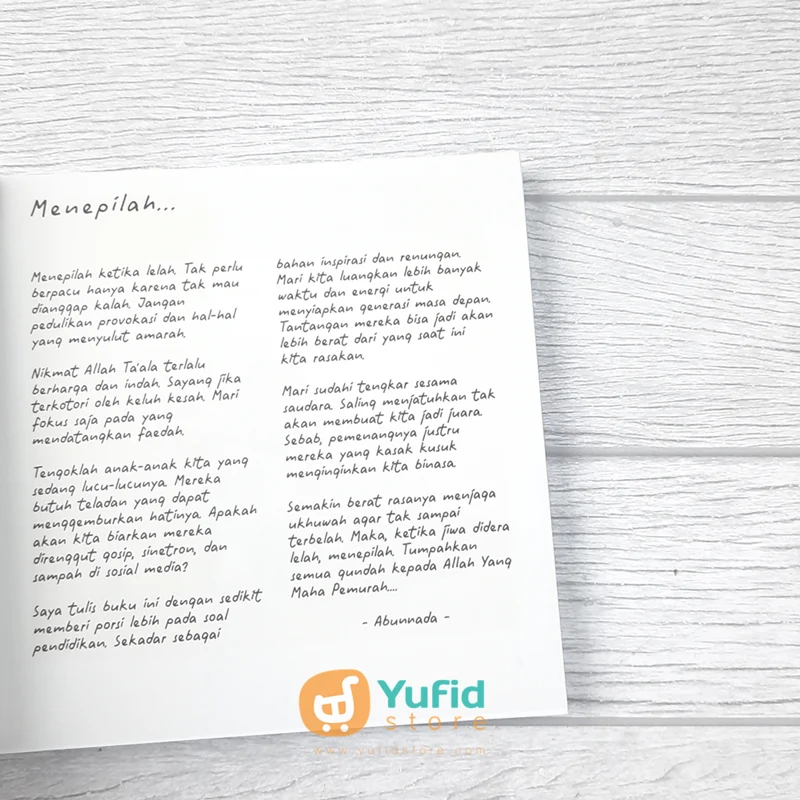 Menepilah...
Menepilah ketika lelah. Tak perlu
berpacu hanya karena tak mau
dianggap kalah. Jangan
pedulikan provokasi dan hal-hal
yang menyulut amarah.
Nikmat Allah Ta'ala terlalu
berharga dan indah. Sayang jika
terkotori oleh keluh kesah. Mari
fokus saja pada yang
mendatangkan faedah.
Tengoklah anak-anak kita yang
sedang lucu-lucunya. Mereka
butuh teladan yang dapat
menggemburkan hatinya. Apakah
akan kita biarkan mereka
direnggut gosip, sinetron, dan
sampah di sosial media?
Saya tulis buku ini dengan sedikit
memberi porsi lebih pada soal
pendidikan. Sekadar sebagai
bahan inspirasi dan renungan.
Mari kita luangkan lebih banyak
waktu dan energi untuk
menyiapkan generasi masa depan.
Tantangan mereka bisa jadi akan
lebih berat dari yang saat ini
kita rasakan.
Mari sudahi tengkar sesama
saudara. Saling menjatuhkan tak
akan membuat kita jadi juara.
Sebab, pemenangnya justru
mereka yang kasak kusuk
menginginkan kita binasa.
Semakin berat rasanya menjaga
ukhuwah agar tak sampai
terbelah. Maka, ketika jiwa didera
lelah, menepilah. Tumpahkan
semua gundah kepada Allah Yang
Maha Pemurah....
- Abunnada -
Yufid
store
www.yufidstore.com